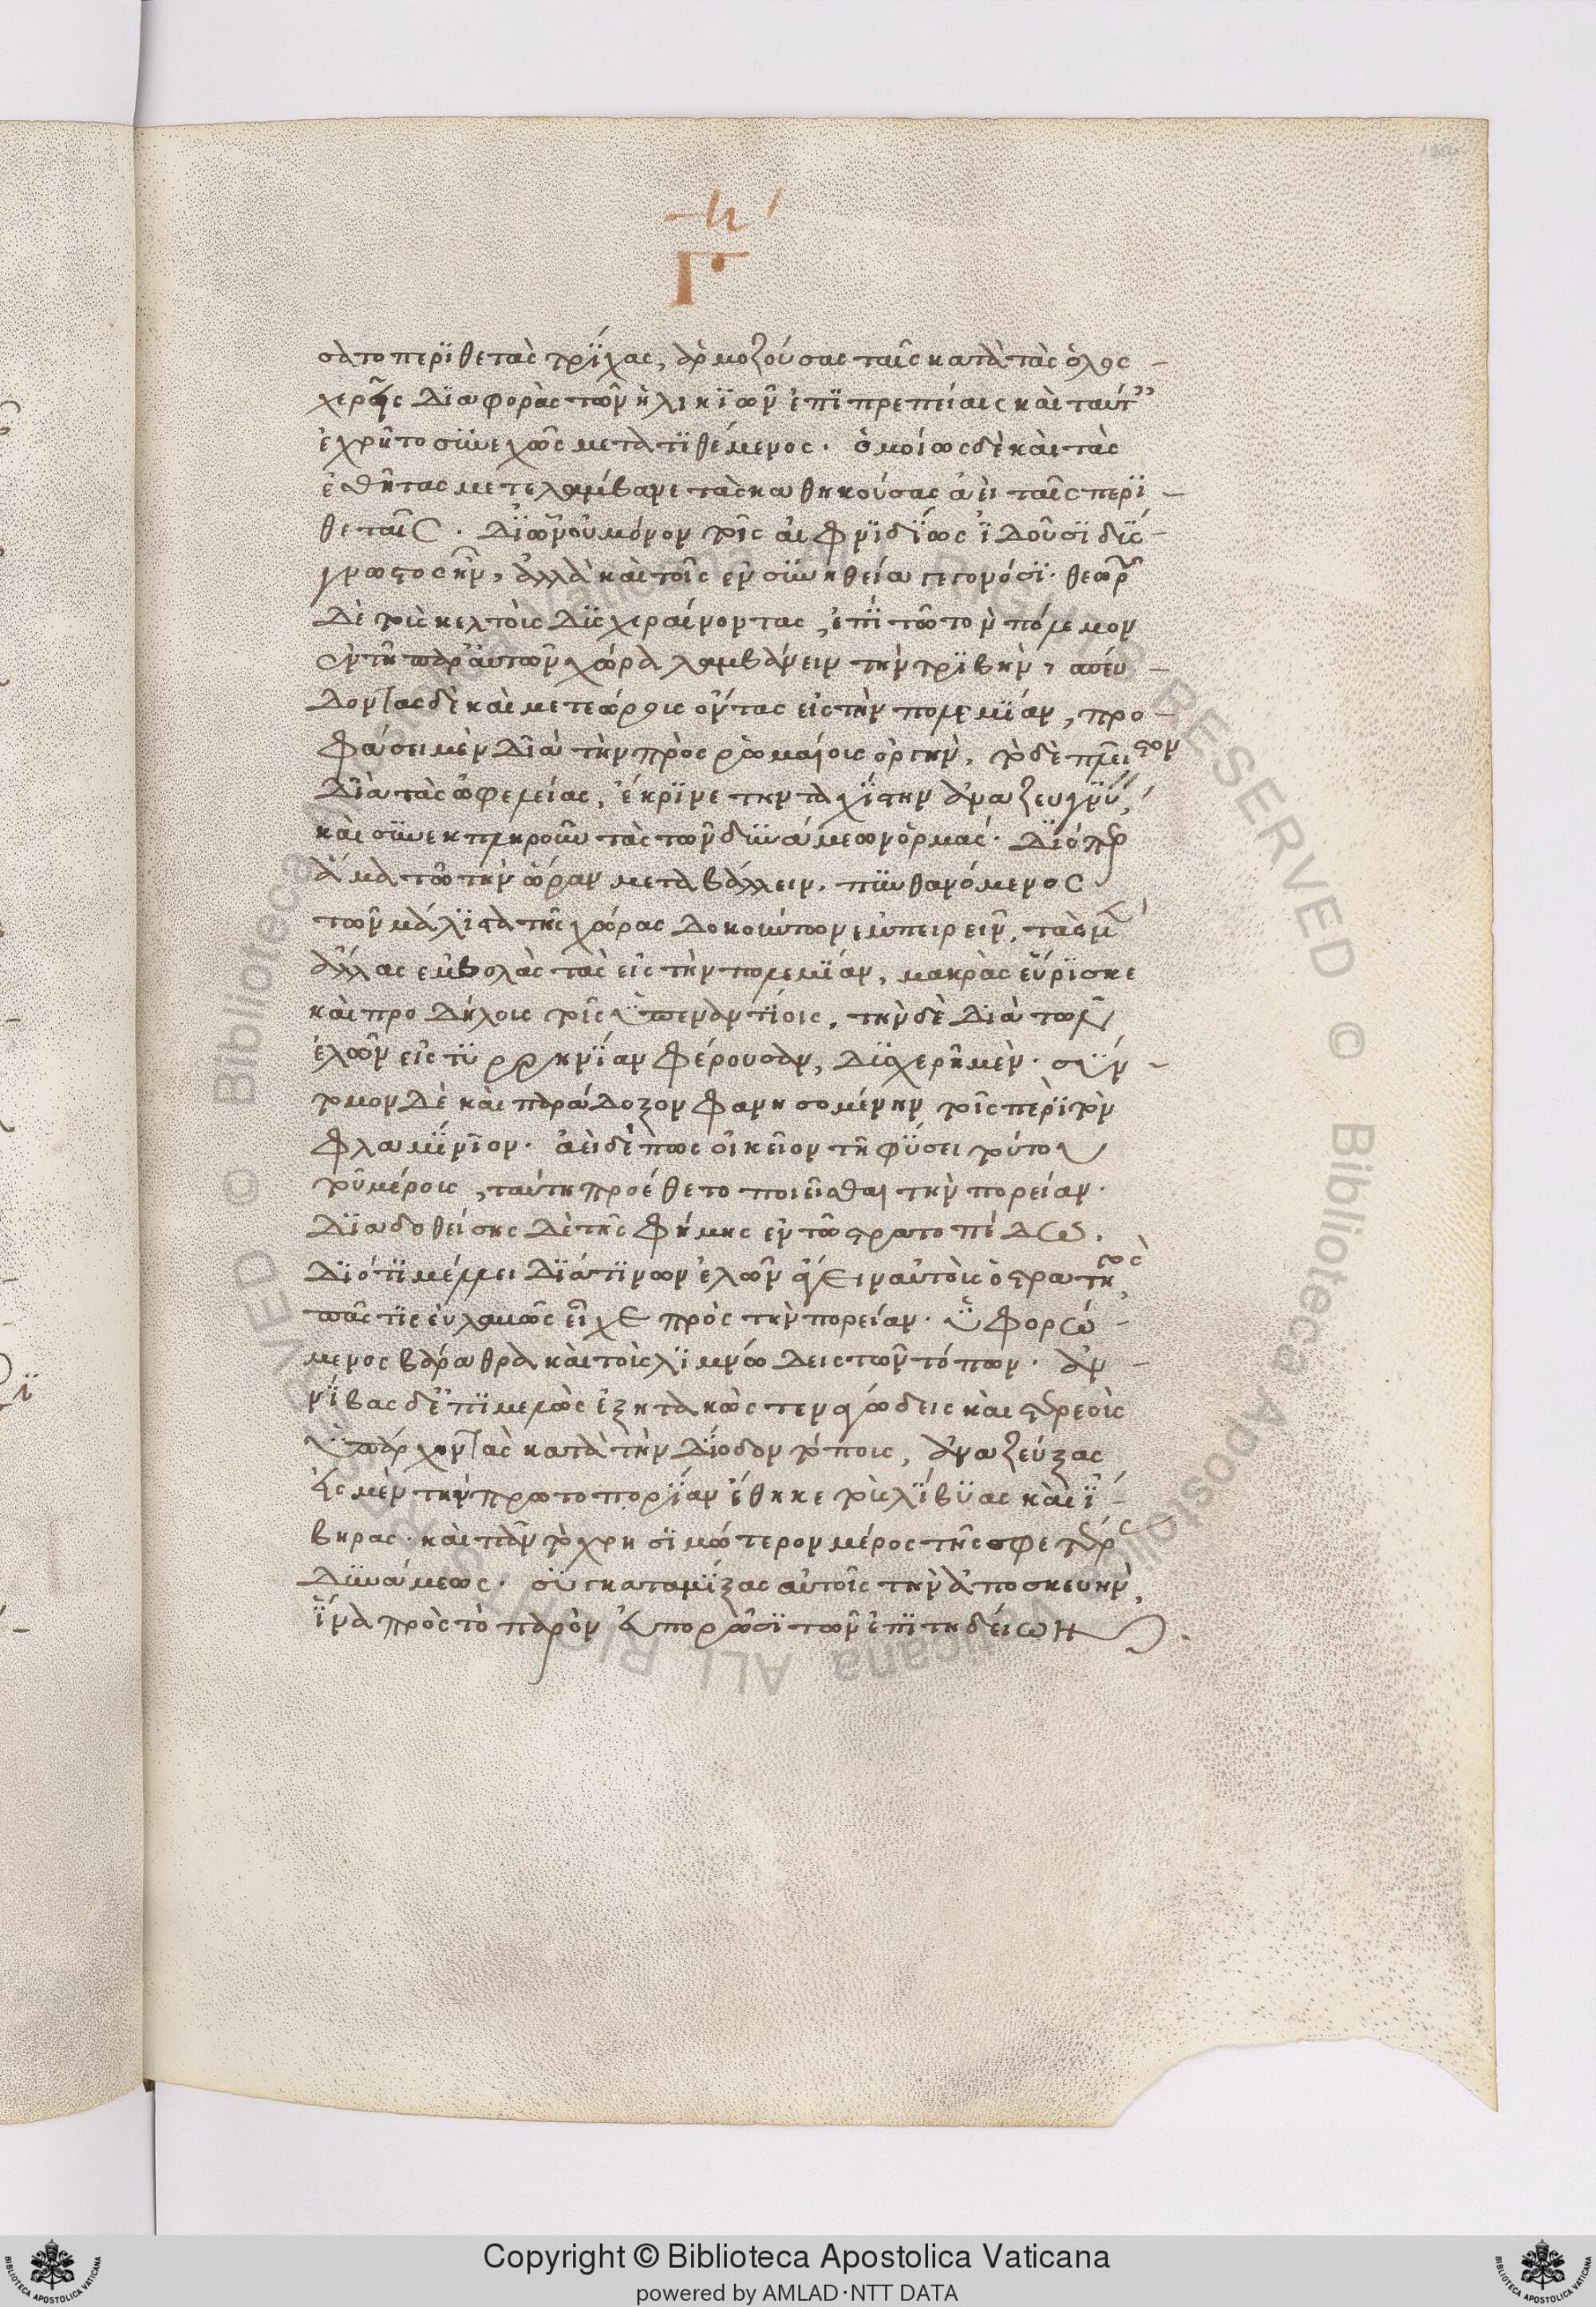 η´
Γ
σατο περϊθετὰς τρϊχας, ἁρμοζούσας ταῖς κατὰ τὰς ὁλοσ-
χερεῖς διαφορὰς τῶν ἡλικϊῶν ἐπϊπρεπείαις καὶ ταύτ
ἐχρῆτο σϋνεχῶς μετατϊθέμενος. ὁμοίως δὲ καὶ τὰς
ἐσθῆτας μετελάμβανε τὰς καθηκούσας ἀεὶ ταῖς περϊ-
θεταῖς. δϊ ὧν οὐ μόνον τοῖς αἰφνϊδϊως ἰδοῦσϊ δύσ-
γνωστος ἦν, ἀλλὰ καὶ τοῖς ἐν σϋνηθεία γεγονόσϊ. θεωρ
δὲ τοὺς κελτοὺς δϋσχεραίνοντας, ἐπϊ τῶ τὸν πόλεμον
ἐν τῆ παρ' αὐτῶν χώρα λαμβάνειν τὴν τρϊβὴν, σπεύ-
δοντας δὲ καὶ μετεώρους ὄντας εἰς τὴν πολεμϊαν, προ-
φάσει μὲν διὰ τὴν πρὸς ῥωμαίους ὀργὴν, τὸ δὲ πλεῖστον
διὰ τὰς ὠφελείας, ἔκρϊνε τὴν ταχϊστην ἀναζευγνύ
καὶ σϋνεκπληροῦν τὰς τῶν δϋνάμεων ὁρμάς. δϊόπερ
ἅμα τῶ τὴν ὥραν μεταβάλλειν, πϋνθανόμενος
τῶν μάλϊστα τῆς χώρας δοκούντων ἐμπειρεῖν, τὰς μ
ἄλλας ἐμβολὰς τὰς εἰς τὴν πολεμϊαν, μακρὰς εὕρϊσκε
καὶ προδήλους τοῖς ὑπεναντϊοις, τὴν δὲ διὰ τῶν
ἑλῶν εἰς τϋρρηνϊαν φέρουσαν, δϋσχερῆ μὲν. σύν-
τομον δὲ καὶ παράδοξον φανησομένην τοῖς περϊ τὸν
φλαμϊνϊον. ἀεὶ δέ πως οἰκεῖον τῆ φϋσει τούτου
τοῦ μέρους, ταύτη προέθετο ποιεῖσθαι τὴν πορείαν.
δϊαδοθείσης δὲ τῆς φήμης ἐν τῶ στρατοπέδω.
δϊότϊ μέλλει δϊά τϊνων ἑλῶν ἄξειν αὐτοὺς ὁ στρατηγὸς
πᾶς τϊς εὐλαβῶς εἶχε πρὸς τὴν πορείαν. ὑφορώ-
μενος βάραθρα καὶ τοὺς λϊμνώδεις τῶν τόπων. ἀν-
νϊβας δ' ἐπϊμελῶς ἐξητακὼς τεναγώδεις καὶ στερεοὺς
ὑπάρχοντας κατὰ τὴν δϊοδον τόπους, ἀναζεύξας
εἰς μὲν τὴν πρωτοπορϊαν ἔθηκε τοὺς λϊβϋας καὶ ϊ-
βηρας. καὶ πᾶν τὸ χρησϊμώτερον μέρος τῆς σφετέρας
δϋνάμεως. σϋγκαταμϊξας αὐτοῖς τὴν ἀποσκευὴν,
ἵνα πρὸς τὸ παρὸν εὐπορῶσϊ τῶν ἐπϊτηδείων.
Copyright © Biblioteca Apostolica Vaticana
powered by AMLAD·NTT DATA